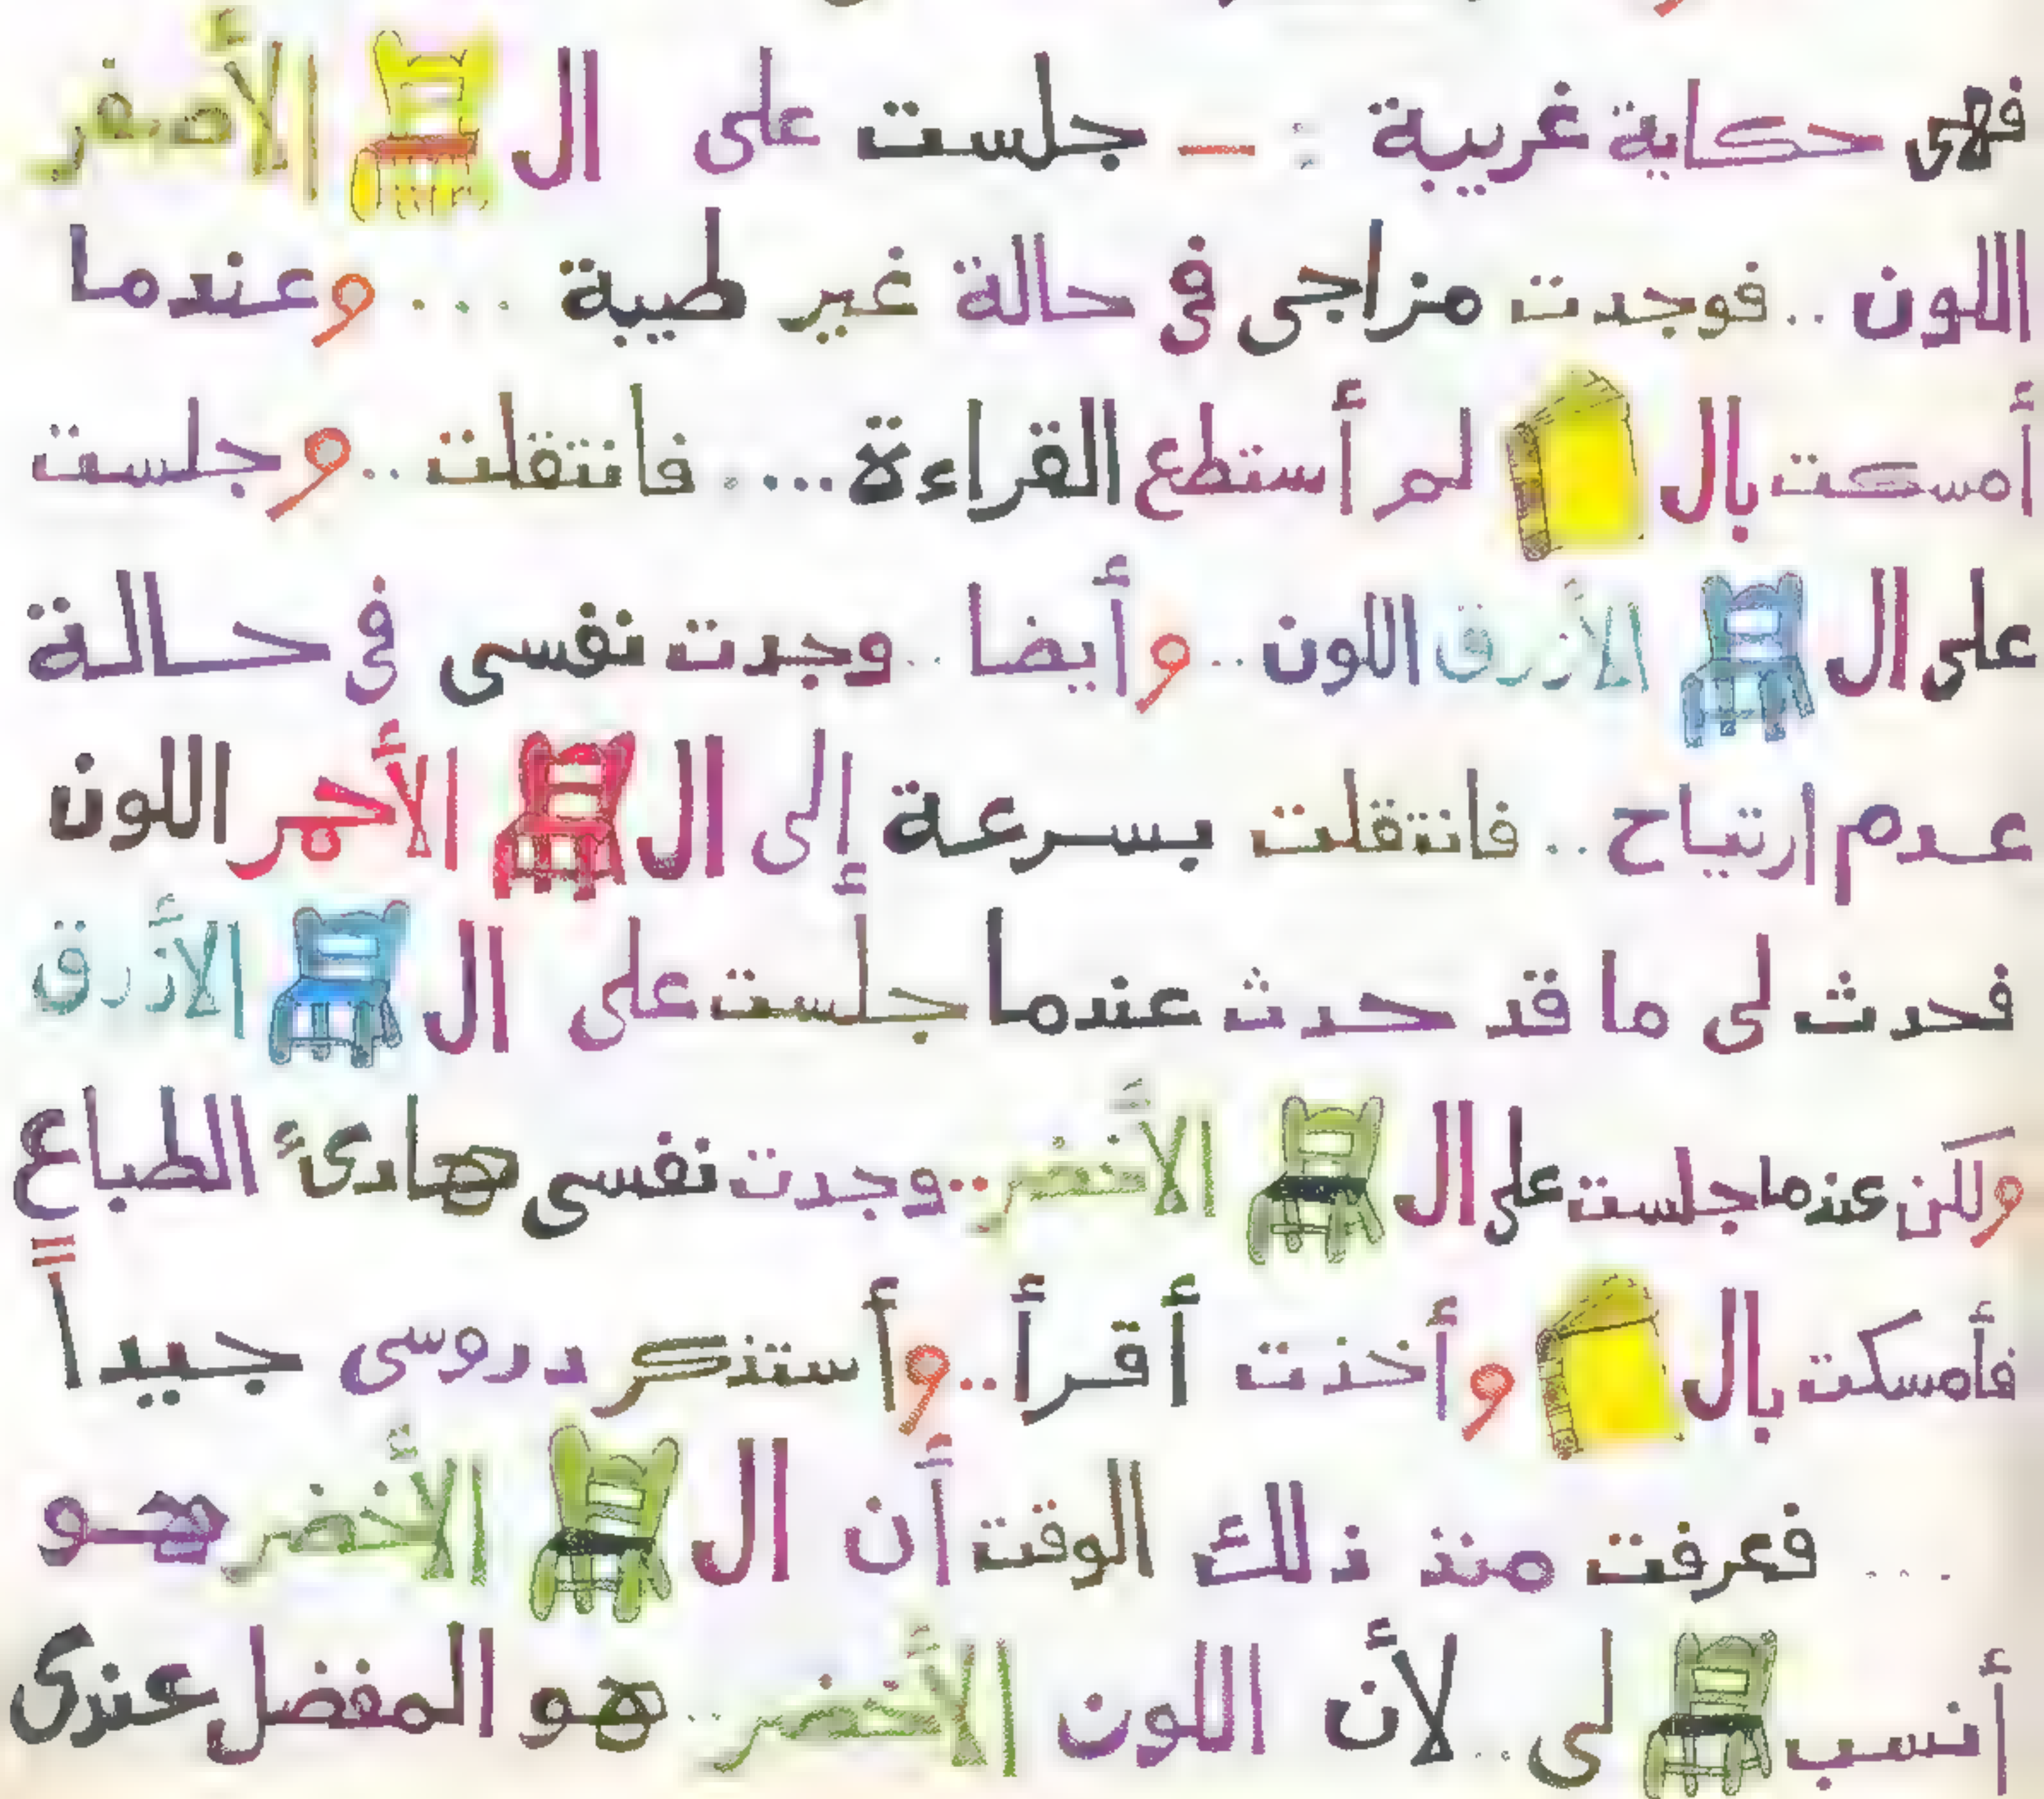 فهى حكاية غريبة : — جلست على ال الأصفر
اللون .. فوجدت مزاجى فى حالة غير طيبة ... وعندما
أمسكت بال لم أستطع القراءة .... فانتقلت .. وجلست
على ال الأزرق اللون .. وأيضا .. وجدت نفسى فى حالة
عدم إرتياح .. فانتقلت بسرعة إلى ال الأحمر اللون
فحدث لى ما قد حدث عندما جلست على ال الأزرق
ولكن عندما جلست على ال الأخضر .. وجدت نفسى هادئ الطباع
فأمسكت بال وأخذت أقرأ .. وأستذكر دروسى جيداً
... فعرفت منذ ذلك الوقت أن ال الأخضر هو
أنسب لى .. لأن اللون الأخضر .. هو المفضل عندى